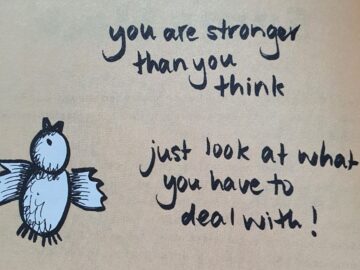 you are stronger
than you
think
just look at what
you have to
deal with!